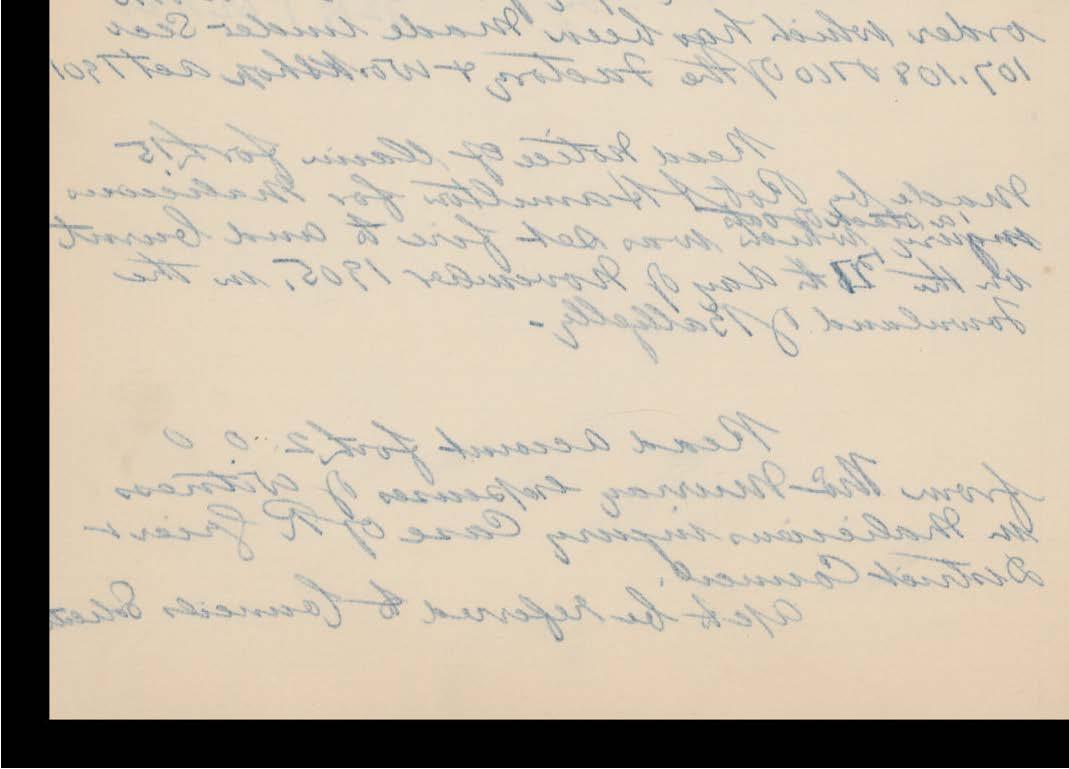 order which has been made under Secs
107. 108 & 110 of the Factory & Workshop act 1901
Read notice of claim for £15
made by Robt Hamilton for malicious
injury, a stack of which was set fire to and burnt
on the 7th day of November 1905, in the
Townland of Ballygelly -
Read account for £2 0 0
from Thos Murray expenses of witness
in malicious injury case of R Grier &
District Council.
a/c to be referred to Councils